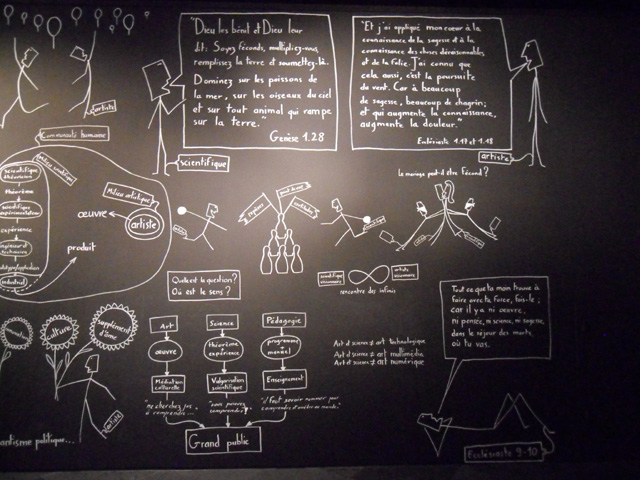 "Dieu les bénit et Dieu leur
dit: Soyez féconds, multipliez-vous,
remplissez la terre et soumettez-là.
Dominez sur les poissons de
la mer, sur les oiseaux du ciel
et sur tout animal qui rampe
sur la terre."
Genèse 1.28
scientifique
"Et j'ai appliqué mon coeur à la
connaissance de la sagesse et à la
connaissance des choses déraisonnables
et de la folie. J'ai connu que
cela aussi, c'est la poursuite
du vent. Car à beaucoup
de sagesse, beaucoup de chagrin;
et qui augmente la connaissance,
augmente la douleur."
Ecclésiaste 1.17 et 1.18
artiste
Le mariage peut-il être Fécond?
artiste
Communauté humaine
théorème
scientifique
expérimentateur
expérience
industriel
Milieu artistique
œuvre
artiste
produit
scientifique
visionnaire
artiste
visionnaire
rencontre des infinis
Quelle est la question?
Où est le sens?
Art
œuvre
Médiation
culturelle
"ne cherchez pas
à comprendre..."
Science
théorème
expérience
Vulgarisation
scientifique
"vous pouvez
comprendre"
Pédagogie
programme
mental
Enseignement
"il faut savoir nommer pour
Grand public
Art et science ≠ art technologique
Art et science ≠ art multimédia
Art et science ≠ art numérique
Tout ce que ta main trouve à
faire avec ta force, fais-le;
car il y a ni œuvre,
ni pensée, ni science, ni sagesse,
dans le séjour des morts,
où tu vas.
Ecclésiaste 9-10
culture
supplément
d'âme
artiste
antisme politique...